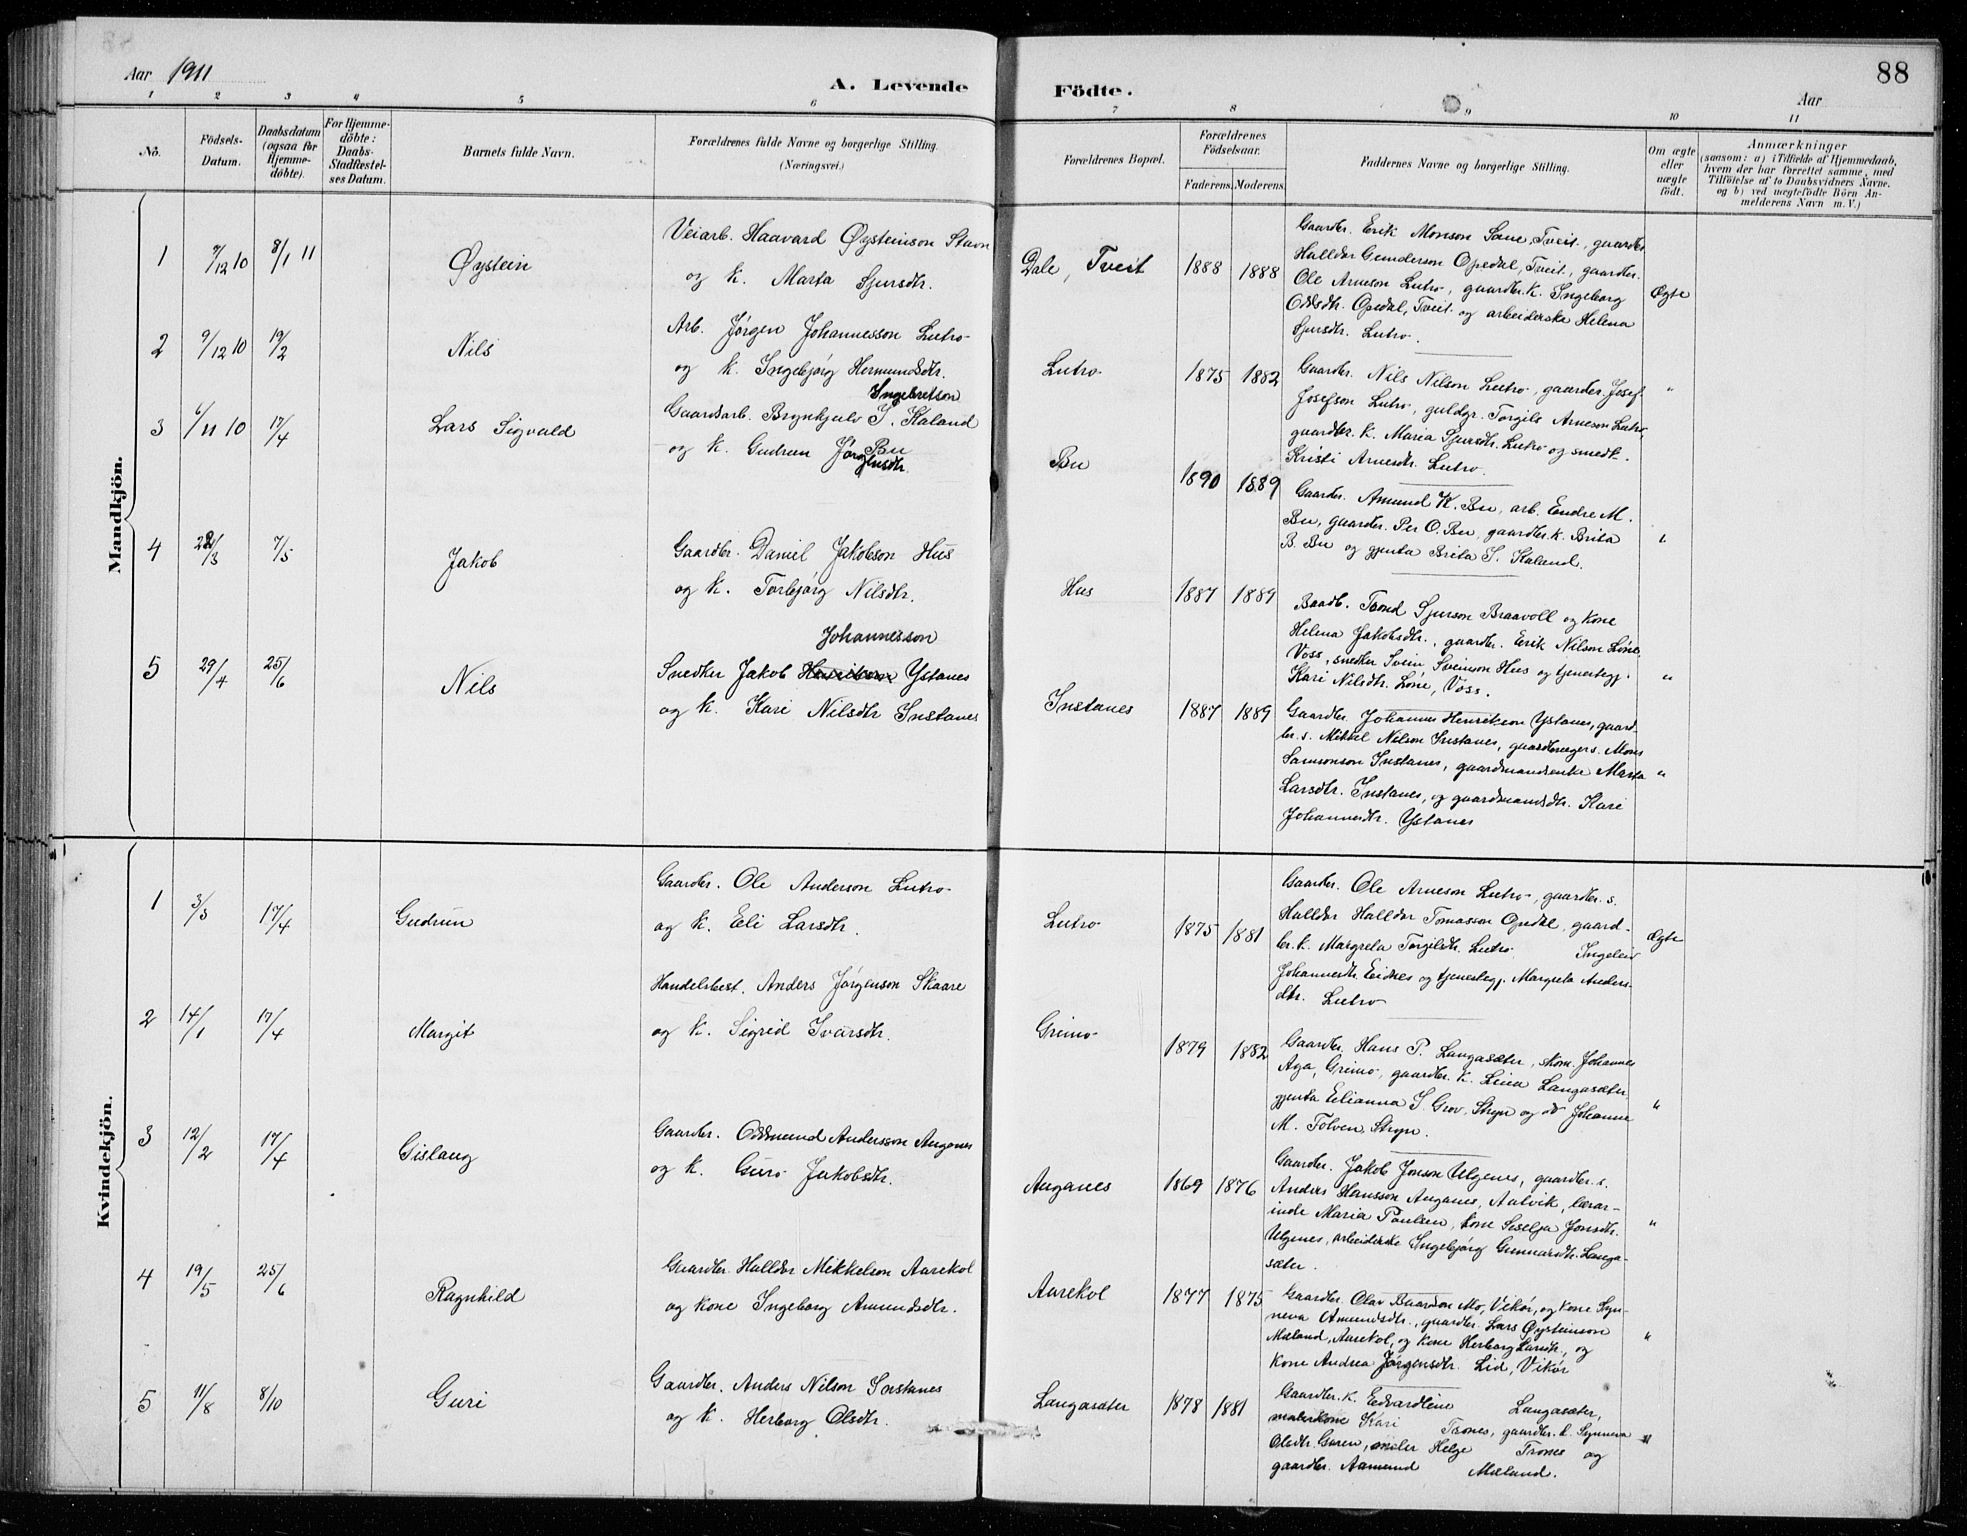 Aar 1911
A. Levende
Födte.
Aar
88
1 2 3 4 5 6 7 8 9 10 11
No.
Födsels-
Datum.
Daabsdatum
(ogsaa for
Hjemme-
döbte).
For Hjemme-
döbte:
Daabs-
Stadfæstel-
ses Datum.
Barnets fulde Navn.
Forældrenes fulde Navne og borgerlige Stilling.
(Næringsvei.)
Forældrenes Bopæl.
Forældrenes
Födselsaar.
Faderens. Moderens.
Faddernes Navne og borgerlige Stilling.
Om ægte
eller
uægte
födt.
Anmærkninger
(saasom: a) i Tilfælde af Hjemmedaab,
hvem der har forrettet samme, med
Tilföielse af to Daabsvidners Navne.
og b) ved uægtefödte Börn An-
melderens Navn m. V.)
Mandkjön.
1 7/12 10 8/1 11 Øystein
Veiarb. Haavard Øysteinson Stavn
og k. Marta Sjursdtr.
Dale, Tveit 1888 1888
Gaardbr. Erik Monson Sane, Tveit, gaardbr.
Halldor Gunderson Opedal, Tveit, gaardbr.
Ole Arneson Lutro, gaardbr. k. Ingeborg
Oddsdtr. Opedal, Tveit og arbeiderske Helena
Sjursdtr. Lutro.
Ægte
2 9/12 10 19/2 Nils
Arb. Jørgen Johannesson Lutro
og k. Ingebjørg Hermundsdtr.
Lutro 1875 1882
Gaardbr. Nils Nilson Lutro, gaardbr. Josef
Josefson Lutro, guldgr. Torgils Arneson Lutro,
gaardbr. k. Maria Sjursdtr. Lutro og smedk.
Kristi Arnesdtr. Lutro.
"
3 6/11 10 17/4 Lars Sigvald
Ingebretson
Gaardsarb. Brynhjulv I. Kaland
og k. Gudrun Jørgensdtr. Bu
Bu 1890 1889
Gaardbr. Amund K. Bu, arb. Endre M.
Bu, gaardbr. Per O. Bu, gaardbr. k. Brita
B. Bu og gjenta Brita I. Kaland.
"
4 22/3 7/5 Jakob
Gaardbr. Daniel Jakobson Hus
og k. Torbjørg Nilsdtr.
Hus 1887 1889
Baadb. Trond Sjurson Braavoll og kone
Helena Jakobsdtr., gaardbr. Erik Nilson Löne,
Voss, snedker Svein Sveinson Hus og tjenestegj.
Kari Nilsdtr. Löne, Voss.
"
5 29/4 25/6 Nils
Johannesson
Snedker Jakob Henrikson Ystanes
og k. Kari Nilsdtr Instanes
Instanes 1887 1889
Gaardbr. Johannes Henrikson Ystanes, gaard-
br. s. Mikkel Nilson Instanes, gaardbrugers. Mons
Samsonson Instanes, gaardmandsenke Marta
Larsdtr. Instanes, og gaardmandsdtr. Kari
Johannesdtr. Ystanes
"
Kvindekjön.
1 3/3 17/4 Gudrun
Gaardbr. Ole Anderson Lutro
og k. Eli Larsdtr.
Lutro 1875 1881
Gaardbr. Ole Arneson Lutro, gaardbr. s.
Halldor Halldor Tomasson Opedal, gaard-
br. k. Margreta Torgilsdtr. Lutro. Ingeleiv
Johannesdtr. Eidnes og tjenestegj. Margreta Anders-
dtr. Lutro
Ægte
2 14/1 17/4 Margit
Handelsbest. Anders Jørgenson Skaare
og k. Sigrid Ivarsdtr.
Grimo 1879 1882
Gaardbr. Hans P. Langasæter, skom. Johannes
Aga, Grimo, gaardbr. k. Lina Langasæter,
gjenta Elianna S. Grov, Stryn og do Johanne
M. Tolven, Stryn.
"
3 12/2 17/4 Gislaug
Gaardbr. Oddmund Andersson Auganes
og k. Guro Jakobsdtr.
Auganes 1869 1876
Gaardbr. Jakob Jonson Ulgenes, gaardbr. s.
Anders Hansson Auganes, Aalvik, lærar-
inde Maria Paulsen, kone Seselja Jonsdtr.
Ulgenes, arbeiderske Ingebjørg Gunnarsdtr. Langa-
sæter.
"
4 19/5 25/6 Ragnhild
Gaardbr. Halldor Mikkelson Aarekol
og kone Ingeborg Amundsdtr.
Aarekol 1877 1875
Gaardbr. Olav Baardson Mo, Vikör, og kone Syn-
neva Amundsdtr., gaardbr. Lars Øysteinson
Mæland, Aarekol, og kone Herborg Larsdtr., og
kone Andrea Jørgensdtr. Lid, Vikör
"
5 11/8 8/10 Guri
Gaardbr. Anders Nilson Instanes
og k. Herborg Olsdtr.
Langasæter 1878 1881
Gaardbr. k. Edvardline Langasæter,
malerkone Kari Trones, gaardbr. k. Synneva
Olsdtr. Garen, maler Helge Trones og
gaardbr. Aamund Mæland.
"